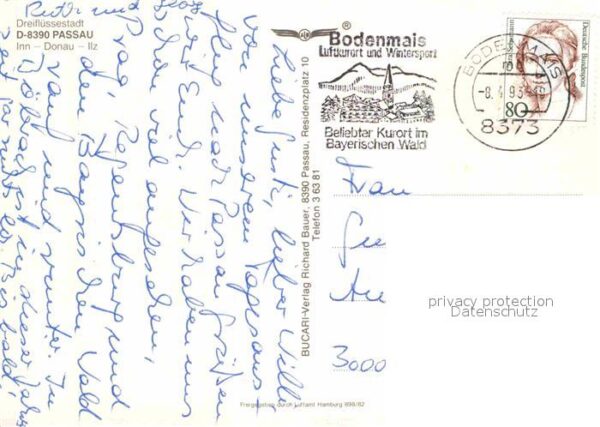 Dreiflüssestadt
D-8390 PASSAU
Inn – Donau – Ilz
Bodenmais
Luftkurort und Wintersport
Beliebter Kurort im
Bayerischen Wald
BODENMAIS
-8.4.93
8373
Deutsche Bundespost
80
BUCARI-Verlag Richard Bauer, 8390 Passau, Residenzplatz 10
Telefon 3 63 81
Liebe Gusti, lieber Willi
von unserem Tagesaus-
flug nach Passau grüßen
wir Euch. Wir haben uns
schon viel angesehen,
Prag, Regensburg und
den Bayrischen Wald
rauf und runter. In
ist in dieser Jahres
Bis bald
Ruth und
Frau
3000
privacy protection
Datenschutz
Freigegeben durch Luftamt Hamburg 898/82